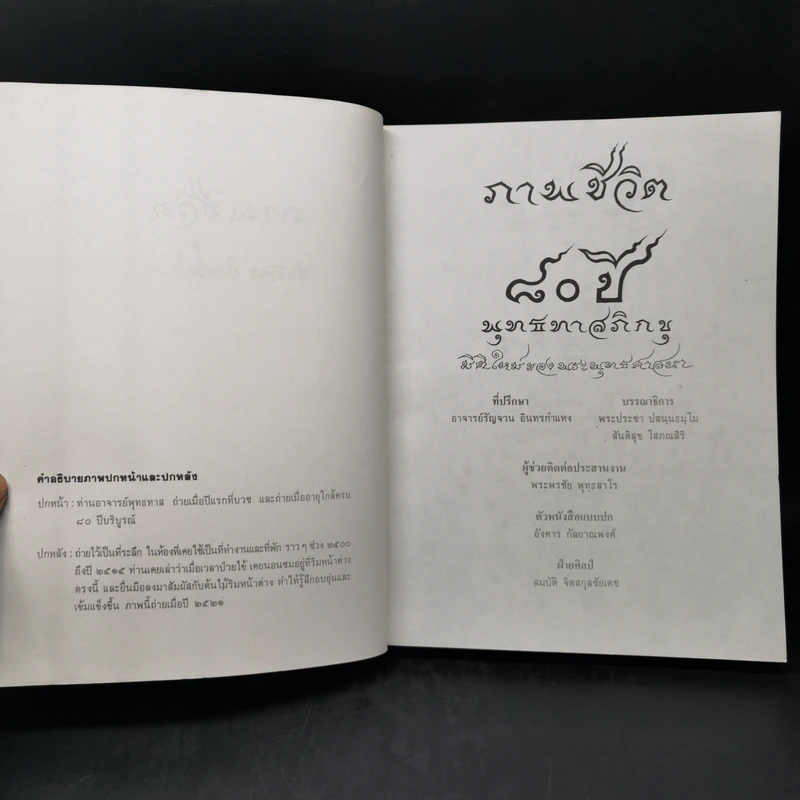 คำอธิบายภาพปกหน้าและปกหลัง
ปกหน้า : ท่านอาจารย์พุทธทาส ถ่ายเมื่อปีแรกที่บวช และถ่ายเมื่ออายุใกล้ครบ
๘๐ ปีบริบูรณ์
ปกหลัง : ถ่ายไว้เป็นที่ระลึก ในห้องที่เคยใช้เป็นที่ทำงานและที่พัก ราว ๆ ช่วง ๒๕๐๐
ถึงปี ๒๕๑๕ ท่านเคยเล่าว่าเมื่อเวลาป่วยไข้ เคยนอนซมอยู่ที่ริมหน้าต่าง
ตรงนี้ และยื่นมือลงมาสัมผัสกับต้นไม้ริมหน้าต่าง ทำให้รู้สึกอบอุ่นและ
เข้มแข็งขึ้น ภาพนี้ถ่ายเมื่อปี ๒๕๒๑
ภาพชีวิต
๘๐ ปี
พุทธทาสภิกขุ
มิติใหม่ของพระพุทธศาสนา
ที่ปรึกษา
อาจารย์รัญจวน อินทรกำแหง
บรรณาธิการ
พระประชา ปสนฺนธมฺโม
สันติสุข โสภณสิริ
ผู้ช่วยติดต่อประสานงาน
พระพรชัย พุทฺธสาโร
ตัวหนังสือแบบปก
อังคาร กัลยาณพงศ์
ฝ่ายศิลป์
สมบัติ จิตสกุลชัยเดช